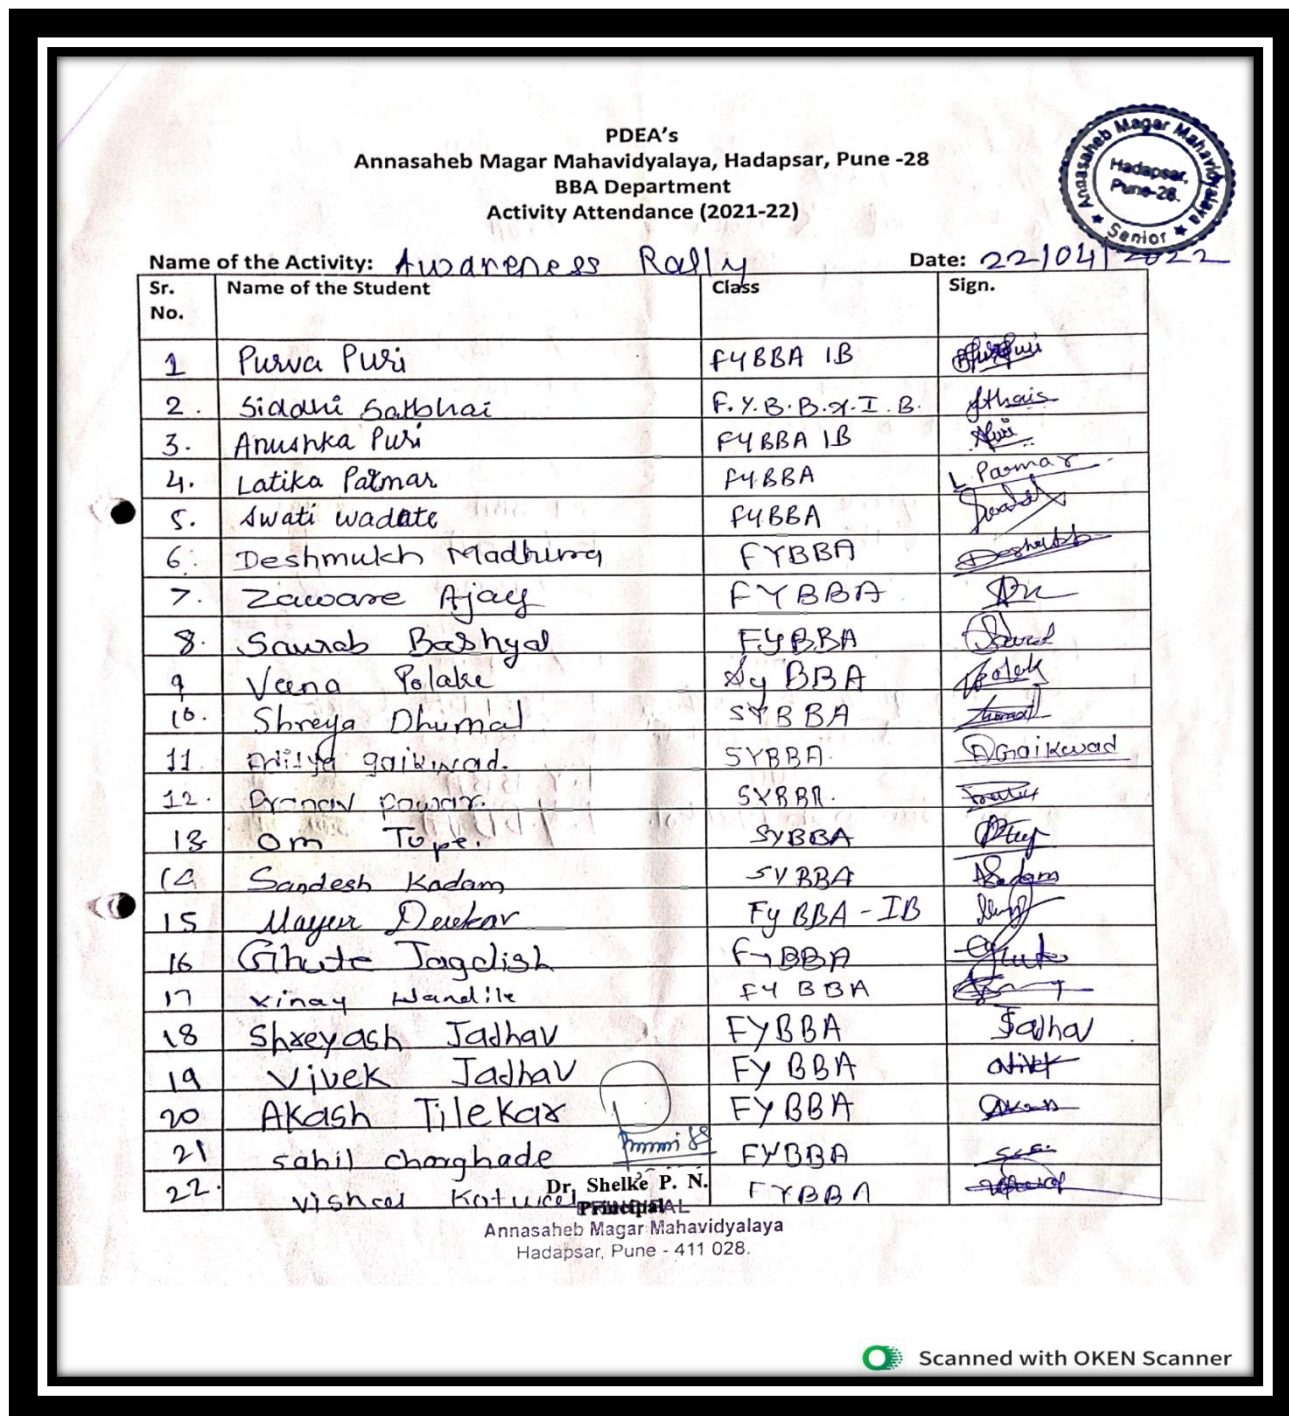 PDEA's
Annasaheb Magar Mahavidyalaya, Hadapsar, Pune -28
BBA Department
Activity Attendance (2021-22)
Annasaheb Magar Mahavidyalaya
Hadapsar,
Pune-28.
★ Senior ★
Name of the Activity: Awareness Rally Date: 22/04/2022
Sr. No. Name of the Student Class Sign.
1 Purva Puri FYBBA IB
2. Siddhi Satbhai F.Y.B.B.A.I.B.
3. Anushka Puri FYBBA IB
4. Latika Parmar FYBBA L Parmar
5. Swati Wadate FYBBA
6. Deshmukh Madhura FYBBA
7. Zaware Ajay FYBBA
8. Saurab Bashyal FYBBA
9 Veena Polake Sy BBA
10. Shreya Dhumal SYBBA
11 Aditya gaikwad. SYBBA. AGaikwad
12. Pranav pawar. SYBBA.
13 Om Tupe. SYBBA
14 Sandesh Kadam SYBBA
15 Mayur Deukar Fy BBA - IB
16 Ghute Jagdish FYBBA
17 Vinay Wandile FY BBA
18 Shreyash Jadhav FYBBA Jadhav
19 Vivek Jadhav FY BBA
20 Akash Tilekar FYBBA
21 Sahil Chorghade FYBBA
22. Vishal Katuwal FYBBA
Dr. Shelke P. N.
Principal
Annasaheb Magar Mahavidyalaya
Hadapsar, Pune - 411 028.
Scanned with OKEN Scanner